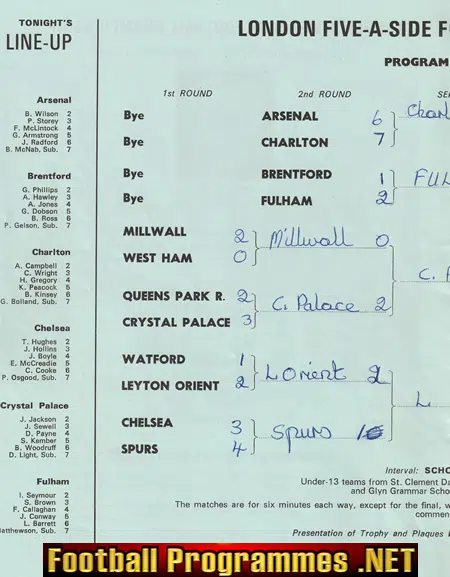 TONIGHT'S
LINE-UP
Arsenal
B. Wilson 2
P. Storey 3
F. McLintock 4
G. Armstrong 5
J. Radford 6
B. McNab, Sub. 7
Brentford
G. Phillips 2
A. Hawley 3
A. Jones 4
G. Dobson 5
B. Ross 6
P. Gelson, Sub. 7
Charlton
A. Campbell 2
C. Wright 3
H. Gregory 4
K. Peacock 5
B. Kinsey 6
G. Bolland, Sub. 7
Chelsea
T. Hughes 2
J. Hollins 3
J. Boyle 4
E. McCreadie 5
C. Cooke 6
P. Osgood, Sub. 7
Crystal Palace
J. Jackson 2
J. Sewell 3
D. Payne 4
S. Kember 5
B. Woodruff 6
D. Light, Sub. 7
Fulham
I. Seymour 2
S. Brown 3
F. Callaghan 4
J. Conway 5
L. Barrett 6
atthewson, Sub. 7
LONDON FIVE-A-SIDE F
PROGRAM
1st ROUND 2nd ROUND SE
Bye ARSENAL 6 Charl
Bye CHARLTON 7
Bye BRENTFORD 1 FUL
Bye FULHAM 2
MILLWALL 2 Millwall 0
WEST HAM 0
C. P
QUEENS PARK R. 2 C. Palace 2
CRYSTAL PALACE 3
WATFORD 1 L Orient 2
LEYTON ORIENT 2
L
CHELSEA 3 Spurs 1
SPURS 4
Interval: SCHO
Under-13 teams from St. Clement Da
and Glyn Grammar Scho
The matches are for six minutes each way, except for the final, w
commen
Presentation of Trophy and Plaques b
Football Programmes .NET